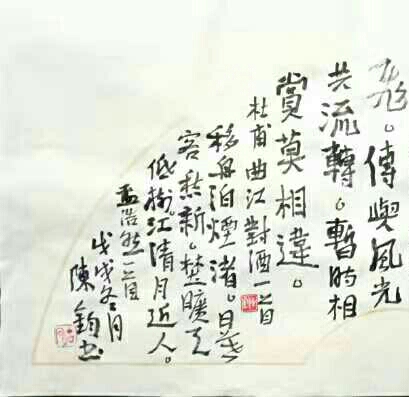 飛。傳嶼風光
共流轉。暫時相
賞莫相違。
杜甫曲江對酒一首
移舟泊煙渚。日暮
客愁新。埜曠天
低樹。江清月近人。
孟浩然一首
戊戌冬月
陳书